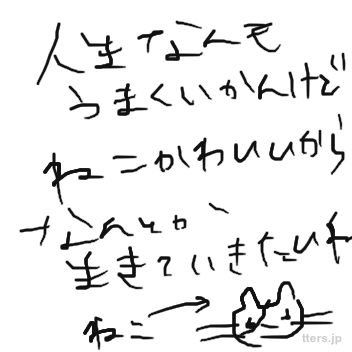 人生なんて
うまくいかんけど
ねこかわいいから
なんとか
生きていきたいね
ねこ
tters.jp